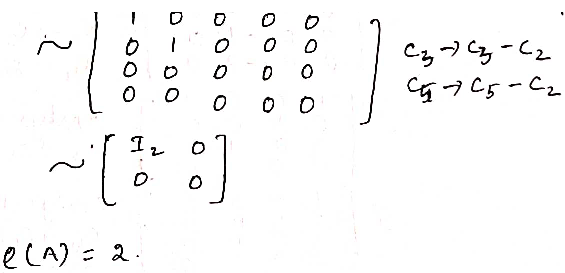 ~ [ 1 0 0 0 0
0 1 0 0 0
0 0 0 0 0
0 0 0 0 0 ] C₃ → C₃ - C₂
C₅ → C₅ - C₂
~ [ I₂ 0
0 0 ]
ρ(A) = 2.